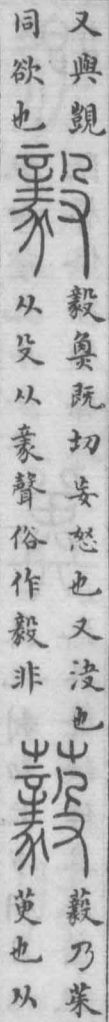 又與覬
同欲也
毅
毅魚既切妄怒也又決也
从殳从豙聲俗作毅非
藙
藙乃茱
萸也从